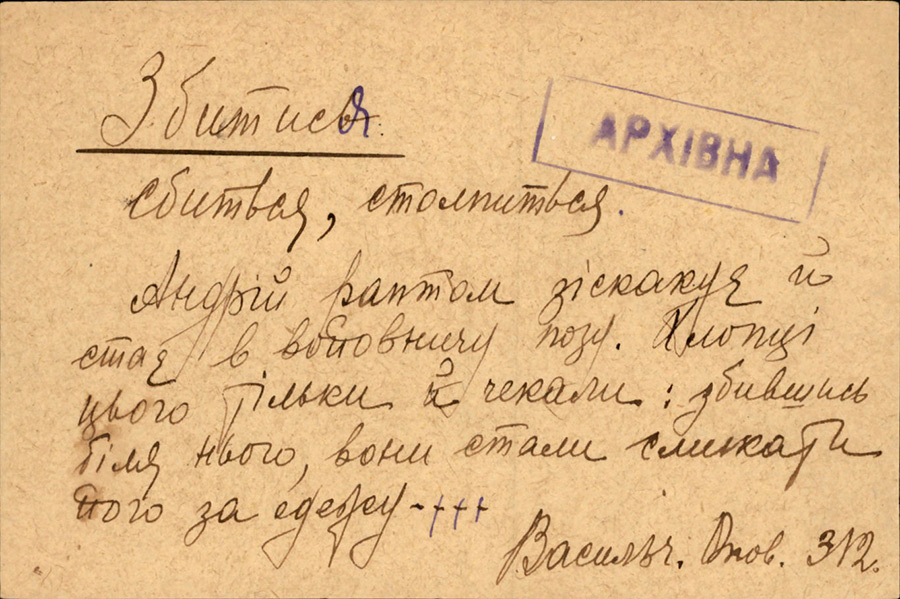 Збитися
АРХІВНА
сбиться, столпиться.
Андрій раптом зіскакує й
стає в войовничу позу. Хлопці
цього тільки й чекали: збившись
біля нього, вони стали смикати
його за одежу
Васильч. Опов. 312.